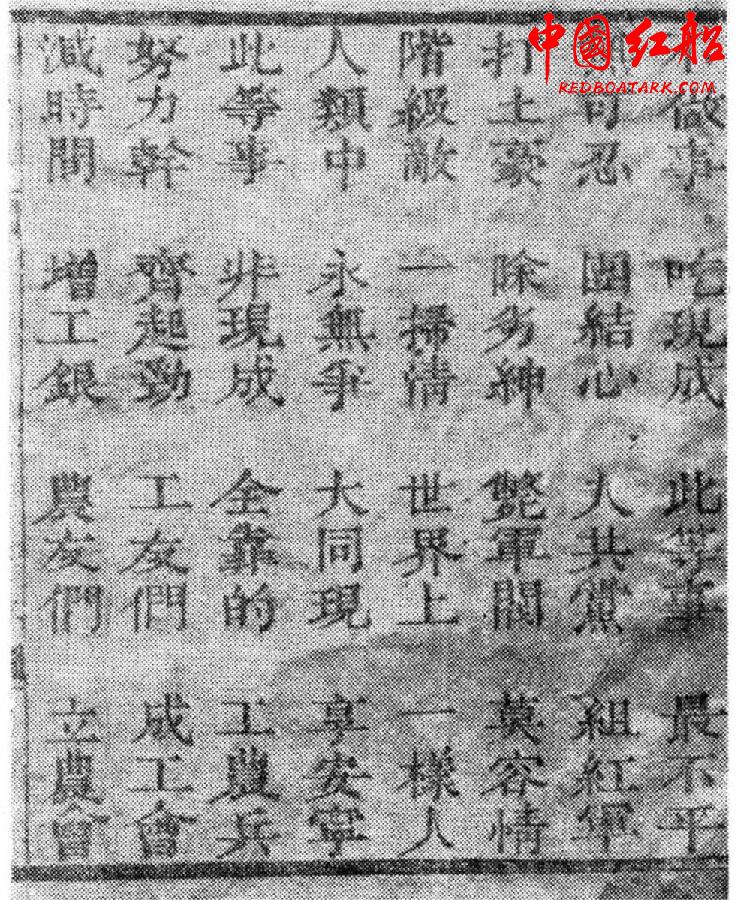 中國红船
REDBOATARK.COM
做事 吃現成 此等事 最不平
可忍 團結心 入共黨 組紅軍
打土豪 除劣紳 斃軍閥 莫容情
階級敵 一掃清 世界上 一樣人
人類中 永無爭 大同現 享安寧
此等事 非現成 全靠的 工農兵
努力幹 齊起勁 工友們 成工會
減時間 增工銀 農友們 立農會